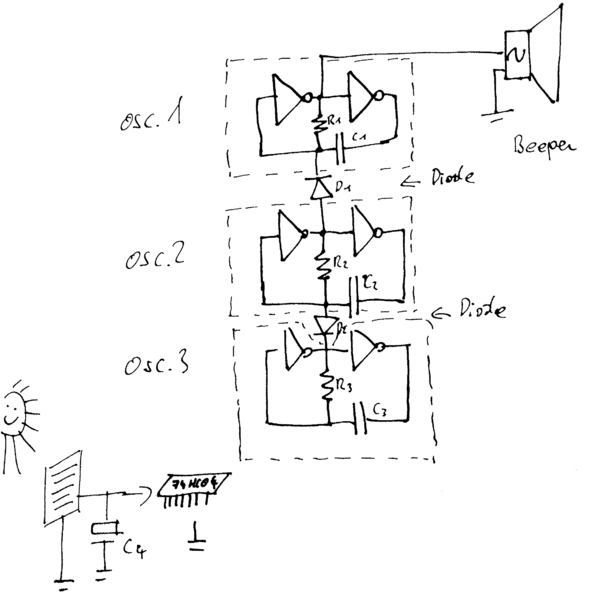 Osc.1
R1
C1
Beeper
D1
← Diode
Osc.2
R2
C2
D2
← Diode
Osc.3
R3
C3
74HC04
C4